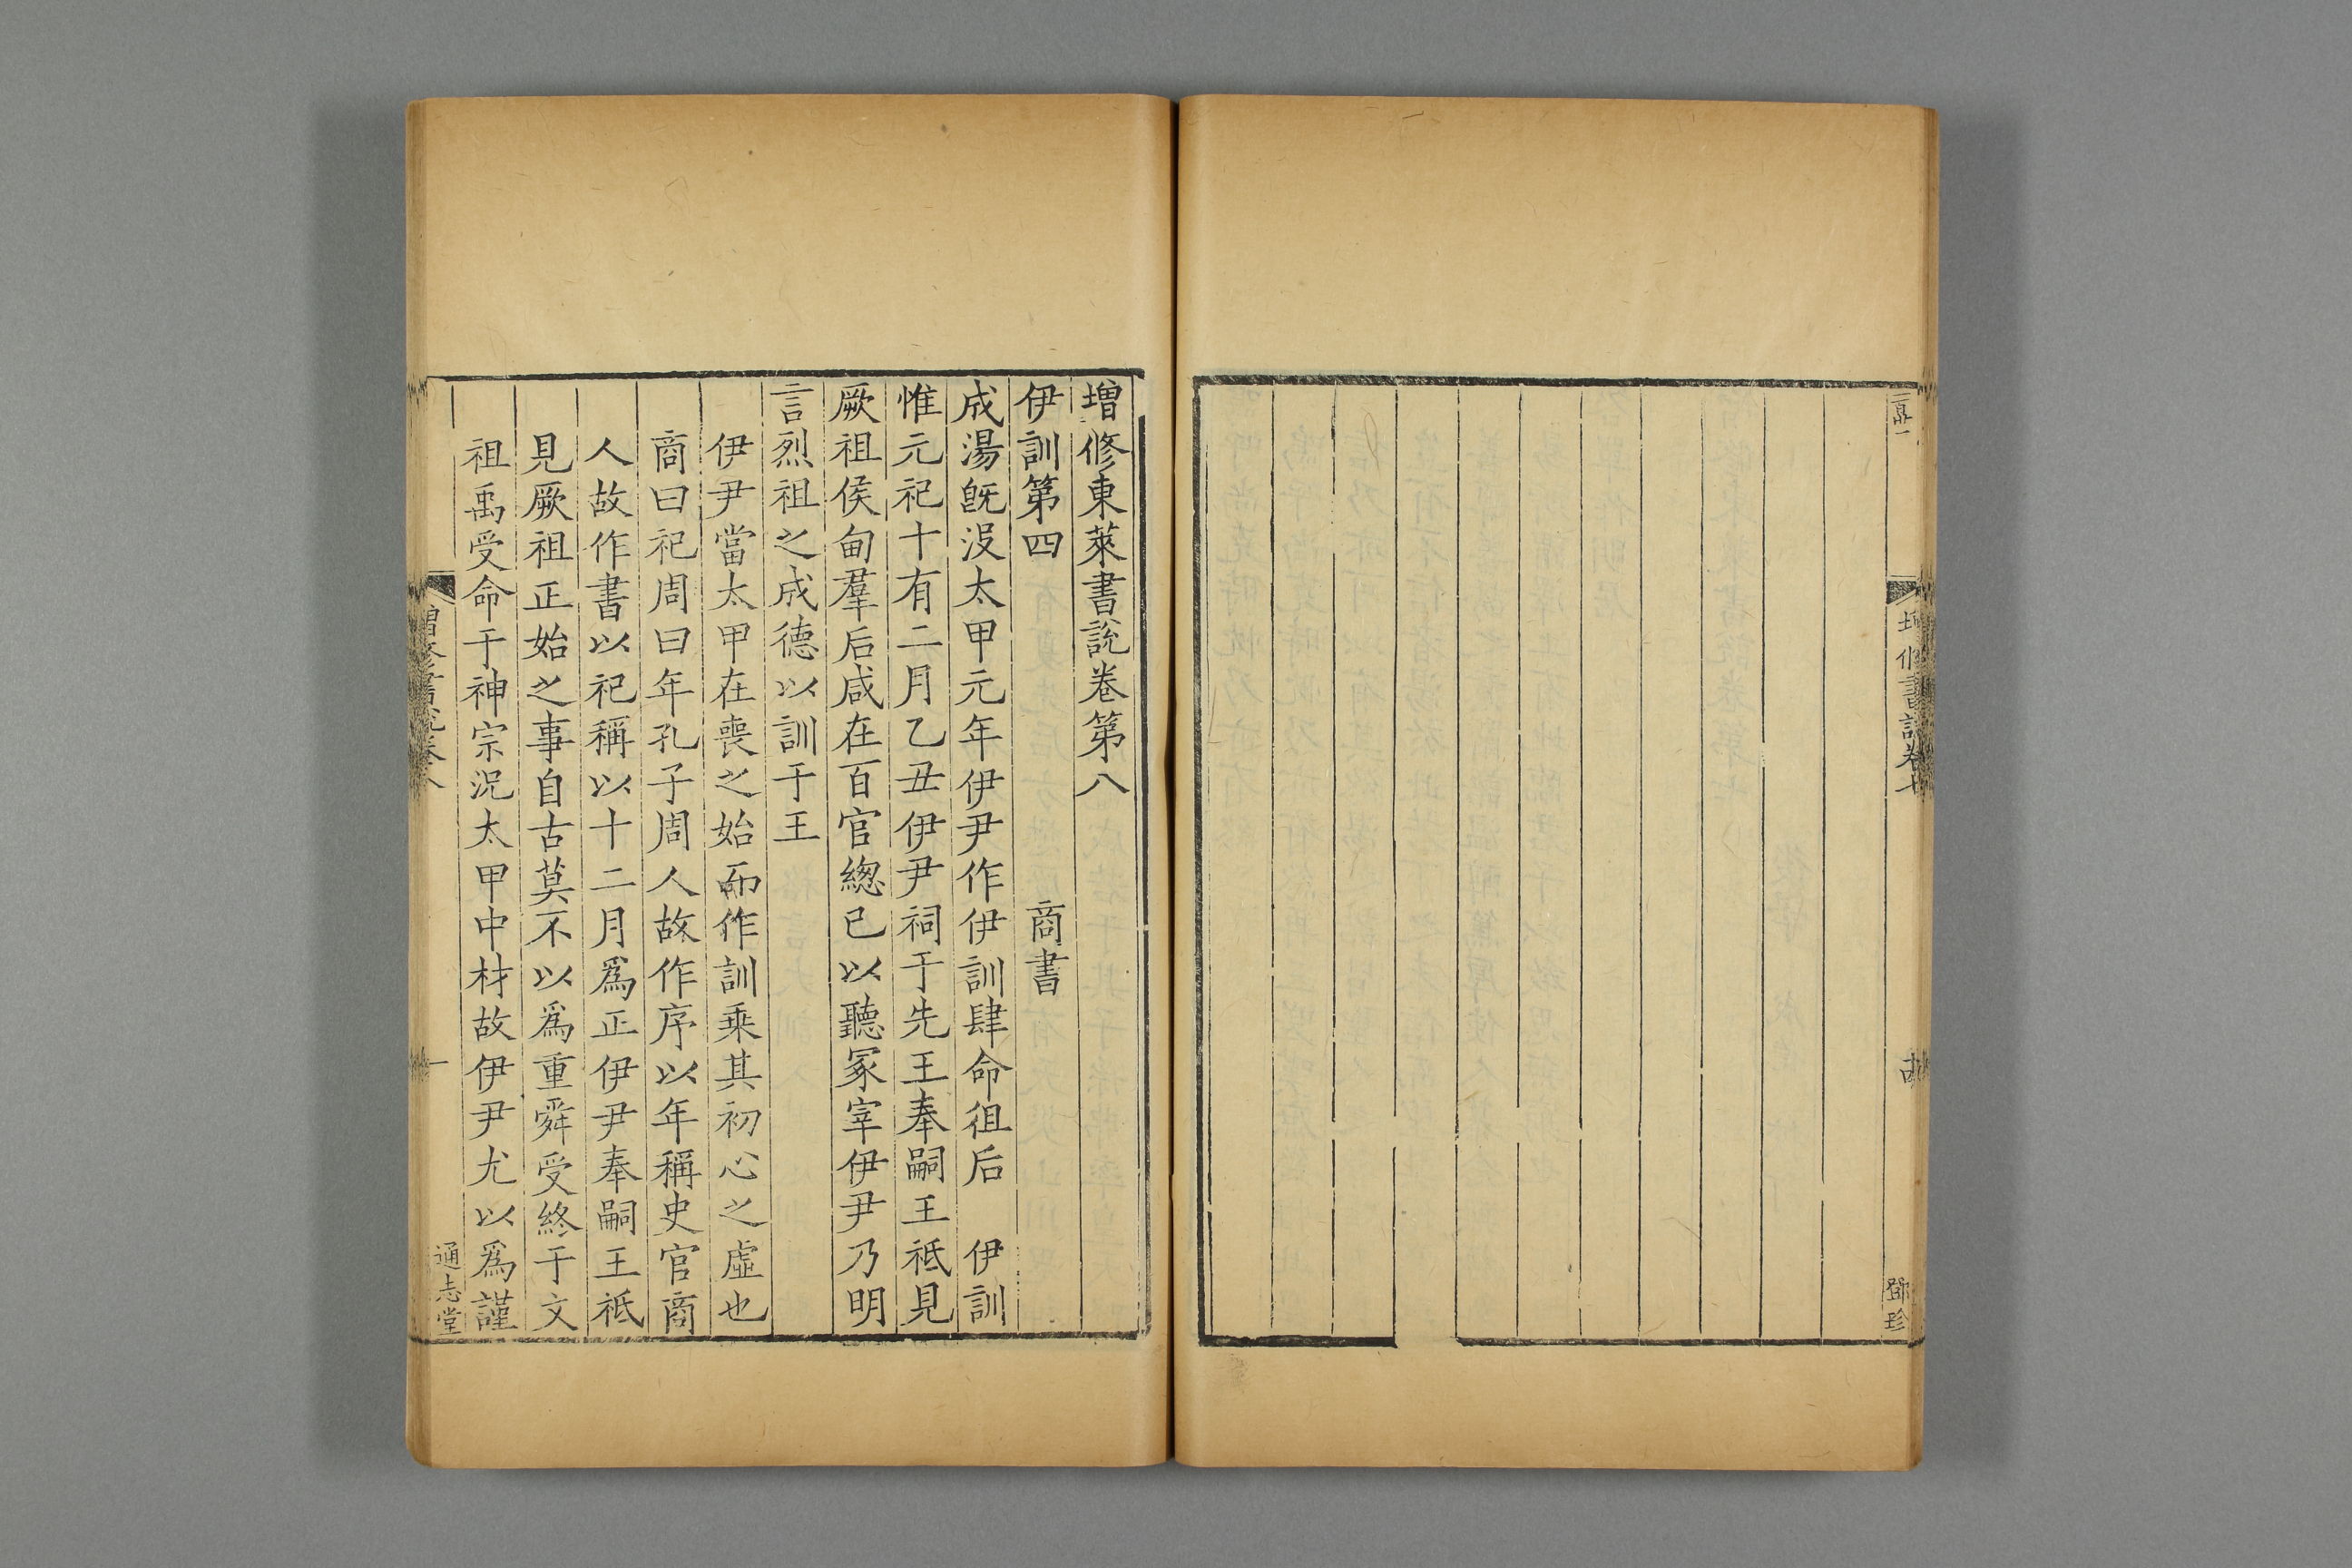 增修東萊書說卷第八
伊訓第四　商書
成湯旣沒太甲元年伊尹作伊訓肆命徂后　伊訓
惟元祀十有二月乙丑伊尹祠于先王奉嗣王祗見
厥祖侯甸羣后咸在百官緫已以聽冢宰伊尹乃明
言烈祖之成德以訓于王
伊尹當太甲在喪之始而作訓乘其初心之虛也
商曰祀周曰年孔子周人故作序以年稱史官商
人故作書以祀稱以十二月爲正伊尹奉嗣王祗
見厥祖正始之事自古莫不以爲重舜受終于文
祖禹受命于神宗況太甲中材故伊尹尤以爲謹
書說卷八
一
通志堂
書說卷七
鄧珍